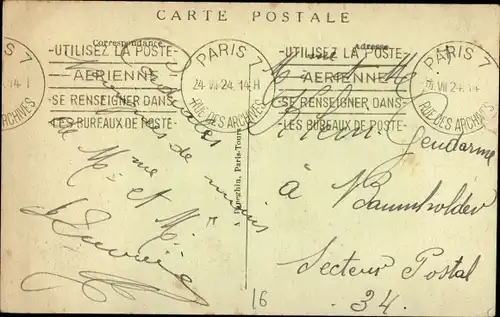 CARTE POSTALE
Correspondance
Adresse
PARIS 7
24·VII 24. 14 H
RUE DES ARCHIVES
-UTILISEZ LA POSTE-
AERIENNE
-SE RENSEIGNER DANS-
-LES BUREAUX DE POSTE-
PARIS 7
24·VII 24. 14 H
RUE DES ARCHIVES
-UTILISEZ LA POSTE-
AERIENNE
-SE RENSEIGNER DANS-
-LES BUREAUX DE POSTE-
PARIS 7
RUE DES ARCHIVES
Cordiales
de mains
de Mr et Mme
Mr et Mme
Gendarme
à Baumholder
Secteur Postal
34.
Paris-Tours
16